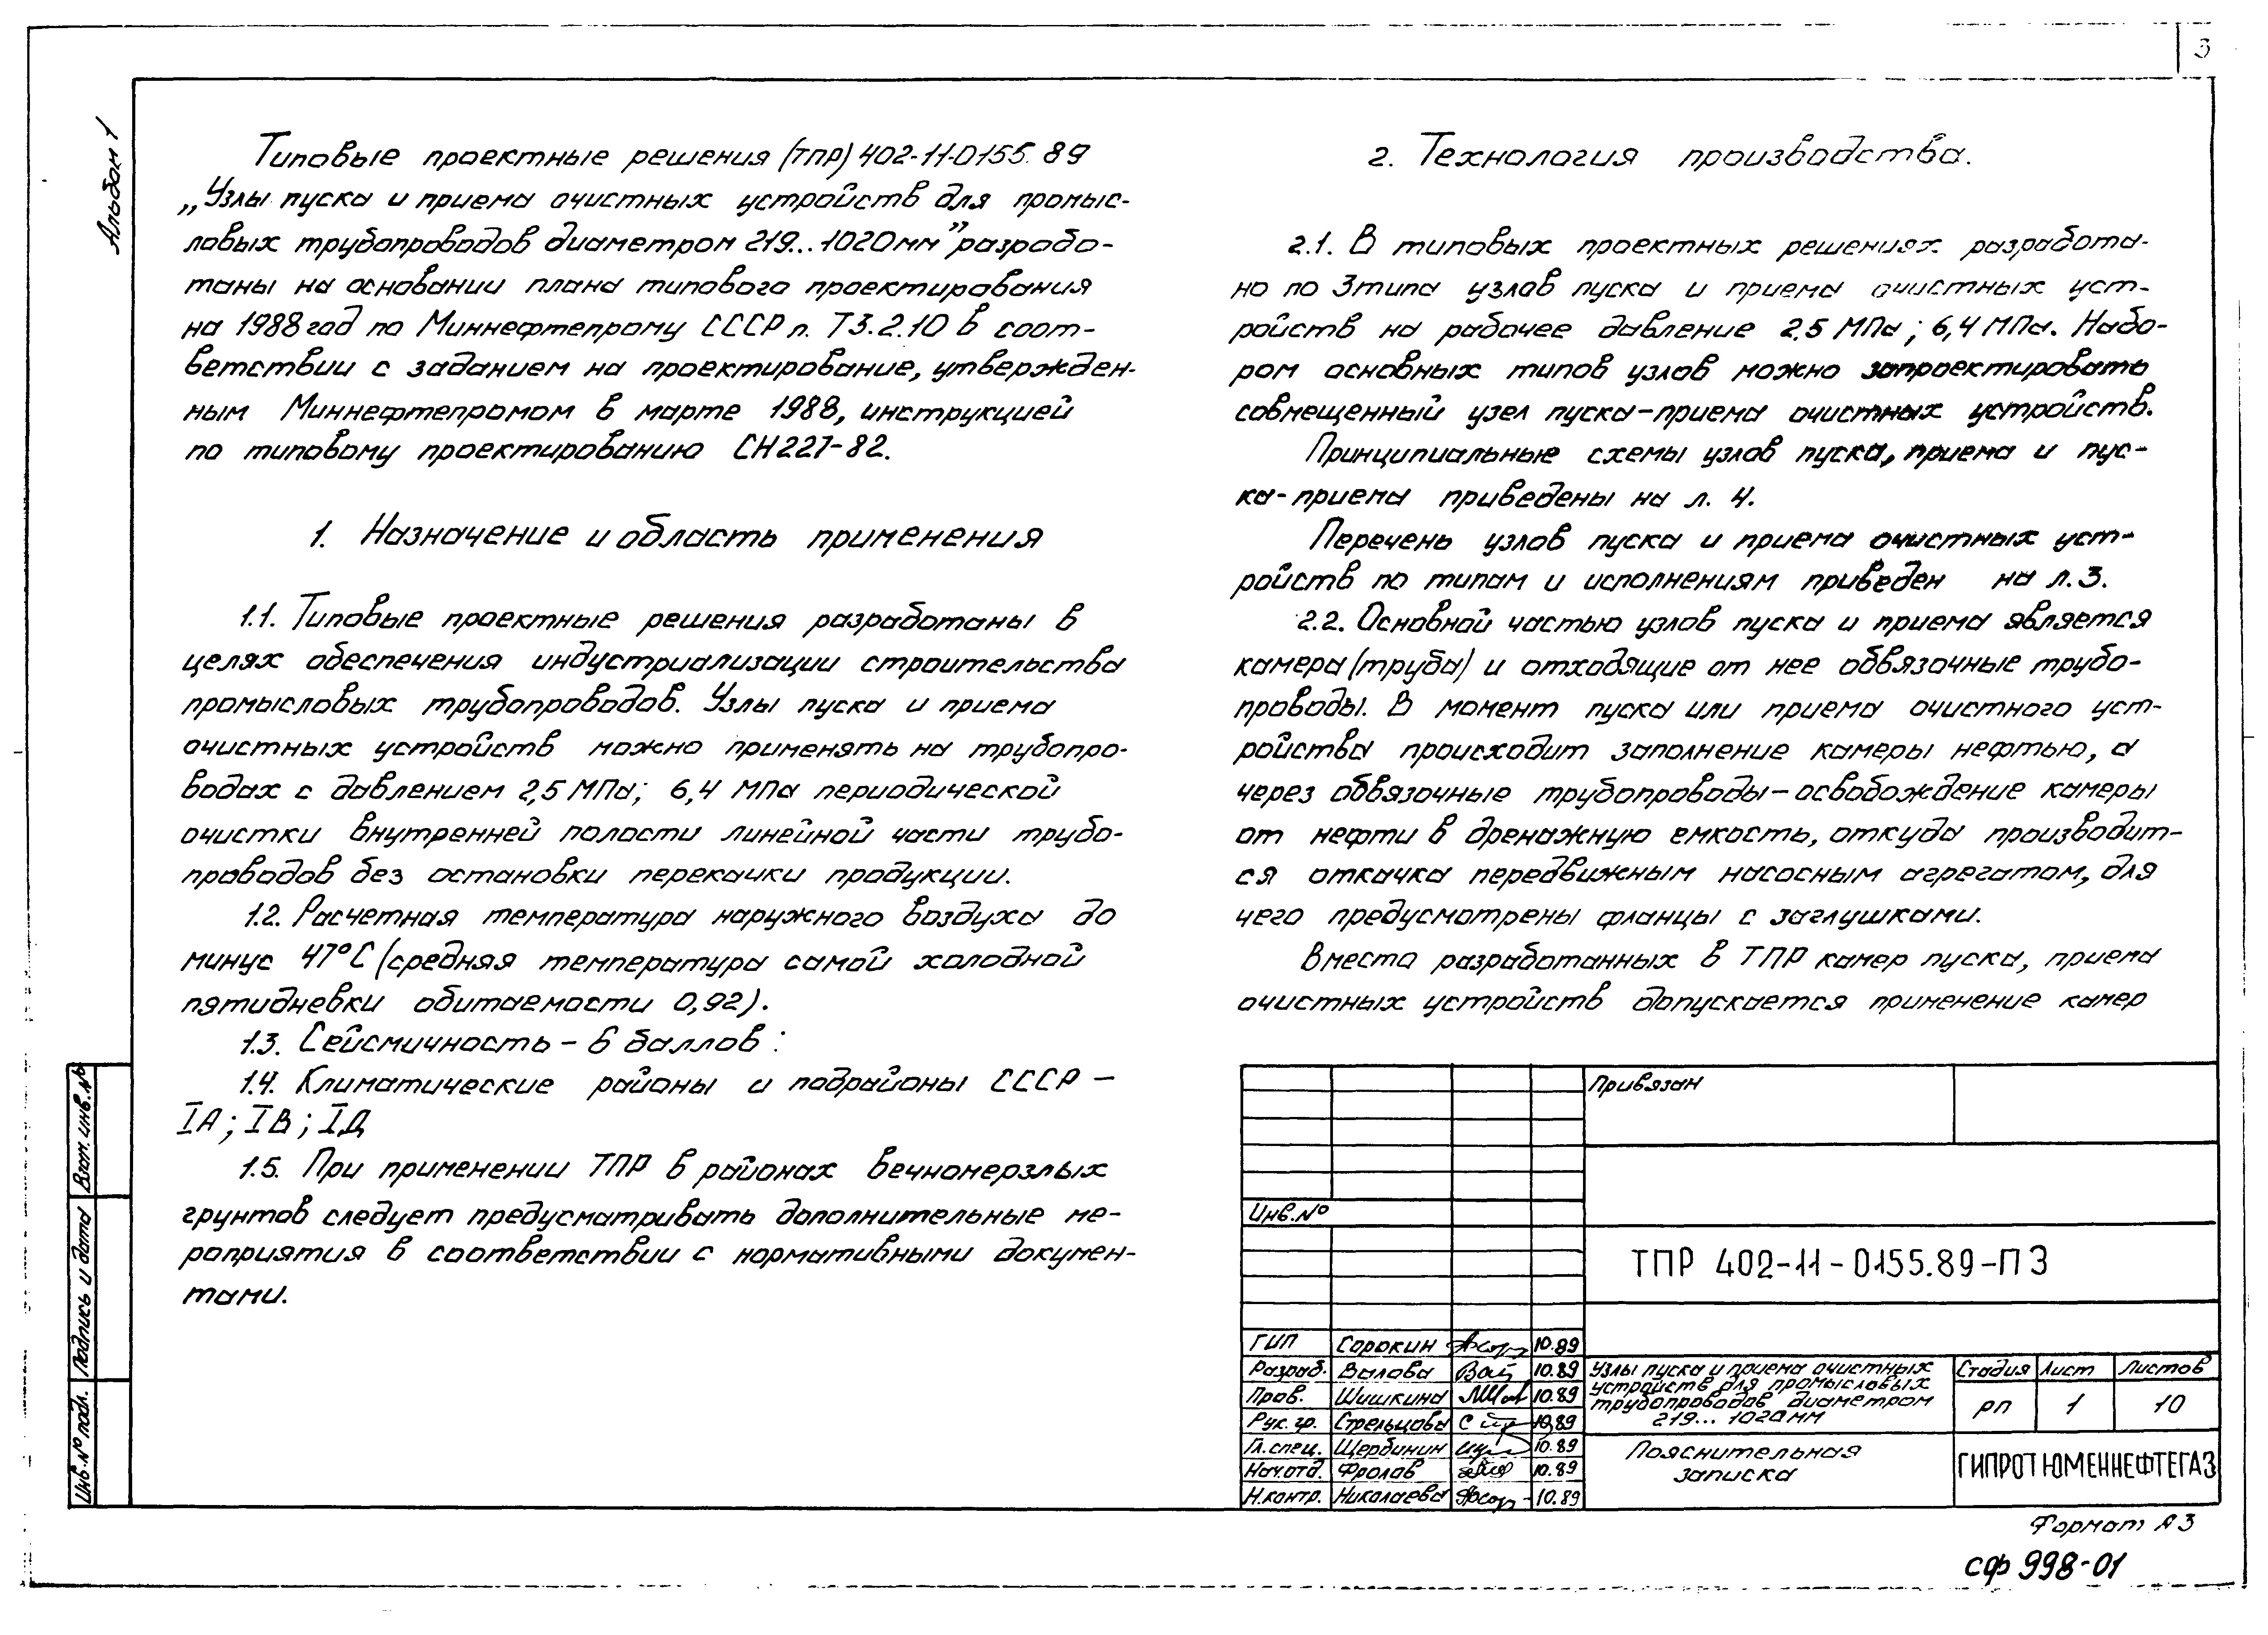 3
Альбом 1
Типовые проектные решения (ТПР) 402-11-0155.89
„Узлы пуска и приема очистных устройств для промыс-
ловых трубопроводов диаметром 219...1020мм” разрабо-
таны на основании плана типового проектирования
на 1988 год по Миннефтепрому СССР п. Т3.2.10 в соот-
ветствии с заданием на проектирование, утвержден-
ным Миннефтепромом в марте 1988, инструкцией
по типовому проектированию СН227-82.
1. Назначение и область применения
1.1. Типовые проектные решения разработаны в
целях обеспечения индустриализации строительства
промысловых трубопроводов. Узлы пуска и приема
очистных устройств можно применять на трубопро-
водах с давлением 2,5 МПа; 6,4 МПа периодической
очистки внутренней полости линейной части трубо-
проводов без остановки перекачки продукции.
1.2. Расчетная температура наружного воздуха до
минус 47°С (средняя температура самой холодной
пятидневки обитаемости 0,92).
1.3. Сейсмичность – 6 баллов:
1.4. Климатические районы и подрайоны СССР –
IА; IВ; IД
1.5. При применении ТПР в районах вечномерзлых
грунтов следует предусматривать дополнительные ме-
роприятия в соответствии с нормативными докумен-
тами.
2. Технология производства.
2.1. В типовых проектных решениях разработа-
но по 3 типа узлов пуска и приема очистных уст-
ройств на рабочее давление 2,5 МПа; 6,4 МПа. Набо-
ром основных типов узлов можно запроектировать
совмещенный узел пуска-приема очистных устройств.
Принципиальные схемы узлов пуска, приема и пус-
ка-приема приведены на л. 4.
Перечень узлов пуска и приема очистных уст-
ройств по типам и исполнениям приведен на л. 3.
2.2. Основной частью узлов пуска и приема является
камера (труба) и отходящие от нее обвязочные трубо-
проводы. В момент пуска или приема очистного уст-
ройства происходит заполнение камеры нефтью, а
через обвязочные трубопроводы – освобождение камеры
от нефти в дренажную емкость, откуда производит-
ся откачка передвижным насосным агрегатом, для
чего предусмотрены фланцы с заглушками.
Вместо разработанных в ТПР камер пуска, приема
очистных устройств допускается применение камер
Взам. инв. №
Подпись и дата
Инв. № подл.
Привязан
Инв. №
ТПР 402-11-0155.89-ПЗ
ГИП Сорокин 10.89
Разраб. Валова 10.89
Пров. Шишкина 10.89
Рук. гр. Стрельцова 10.89
Гл. спец. Щербинин 10.89
Нач. отд. Фролов 10.89
Н. контр. Николаева 10.89
Узлы пуска и приема очистных
устройств для промысловых
трубопроводов диаметром
219... 1020 мм
Стадия Лист Листов
РП 1 10
Пояснительная
записка
ГИПРОТЮМЕННЕФТЕГАЗ
Формат А3
сф 998-01